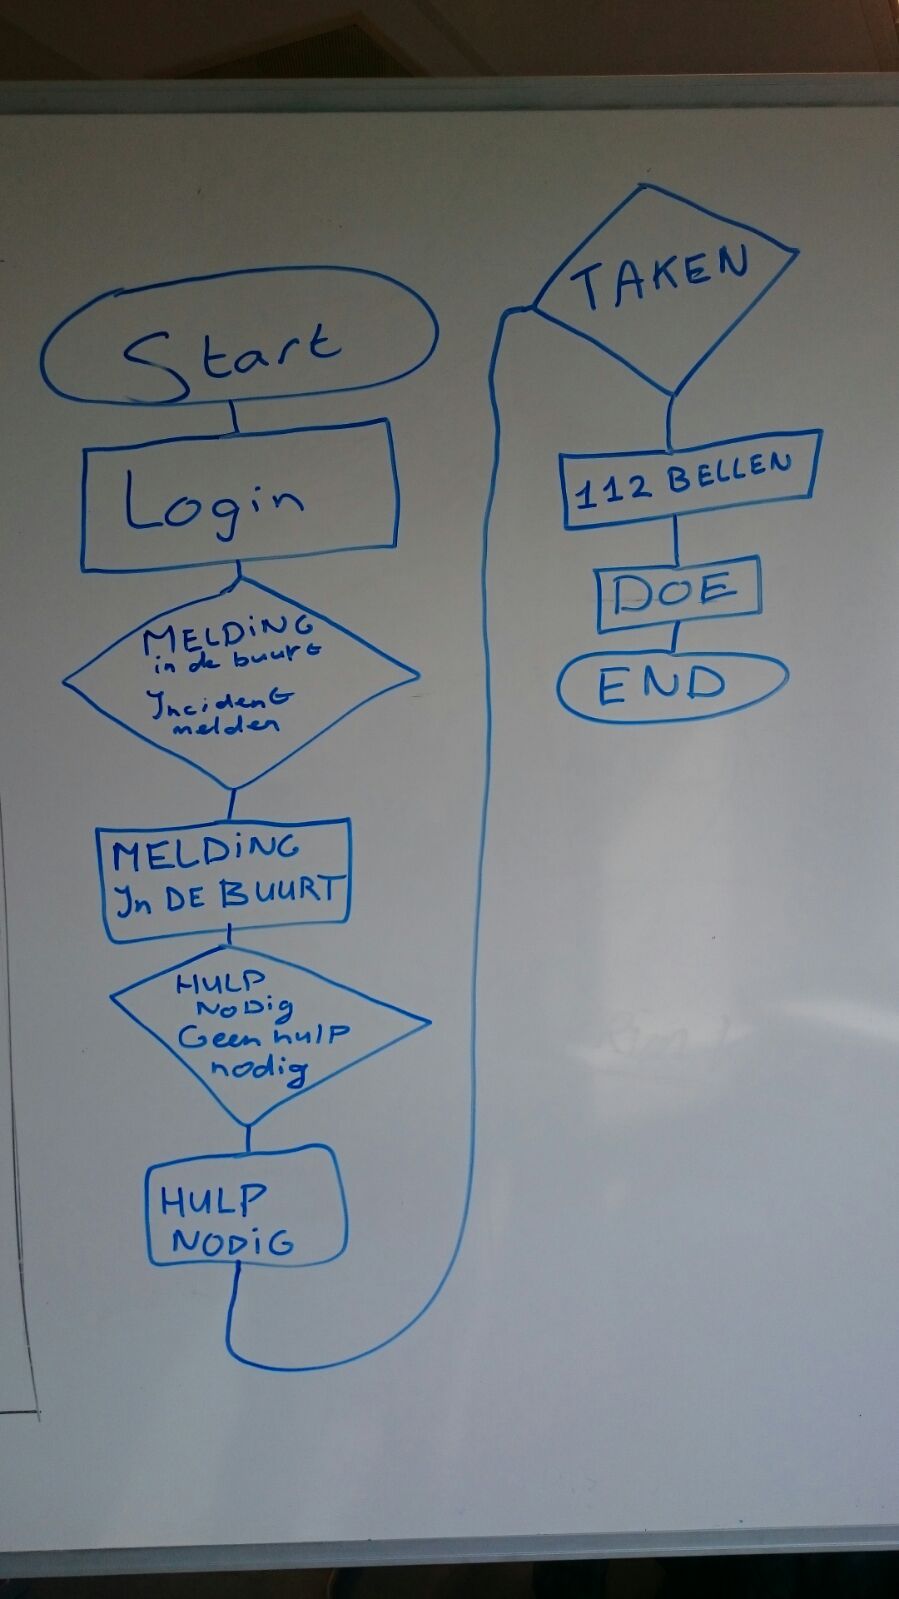 Start
Login
MELDiNG
in de buurt
Incident
melden
MELDiNG
In DE BUURT
HULP
NoDig
Geen hulp
nodig
HULP
NODiG
TAKEN
112 BELLEN
DOE
END